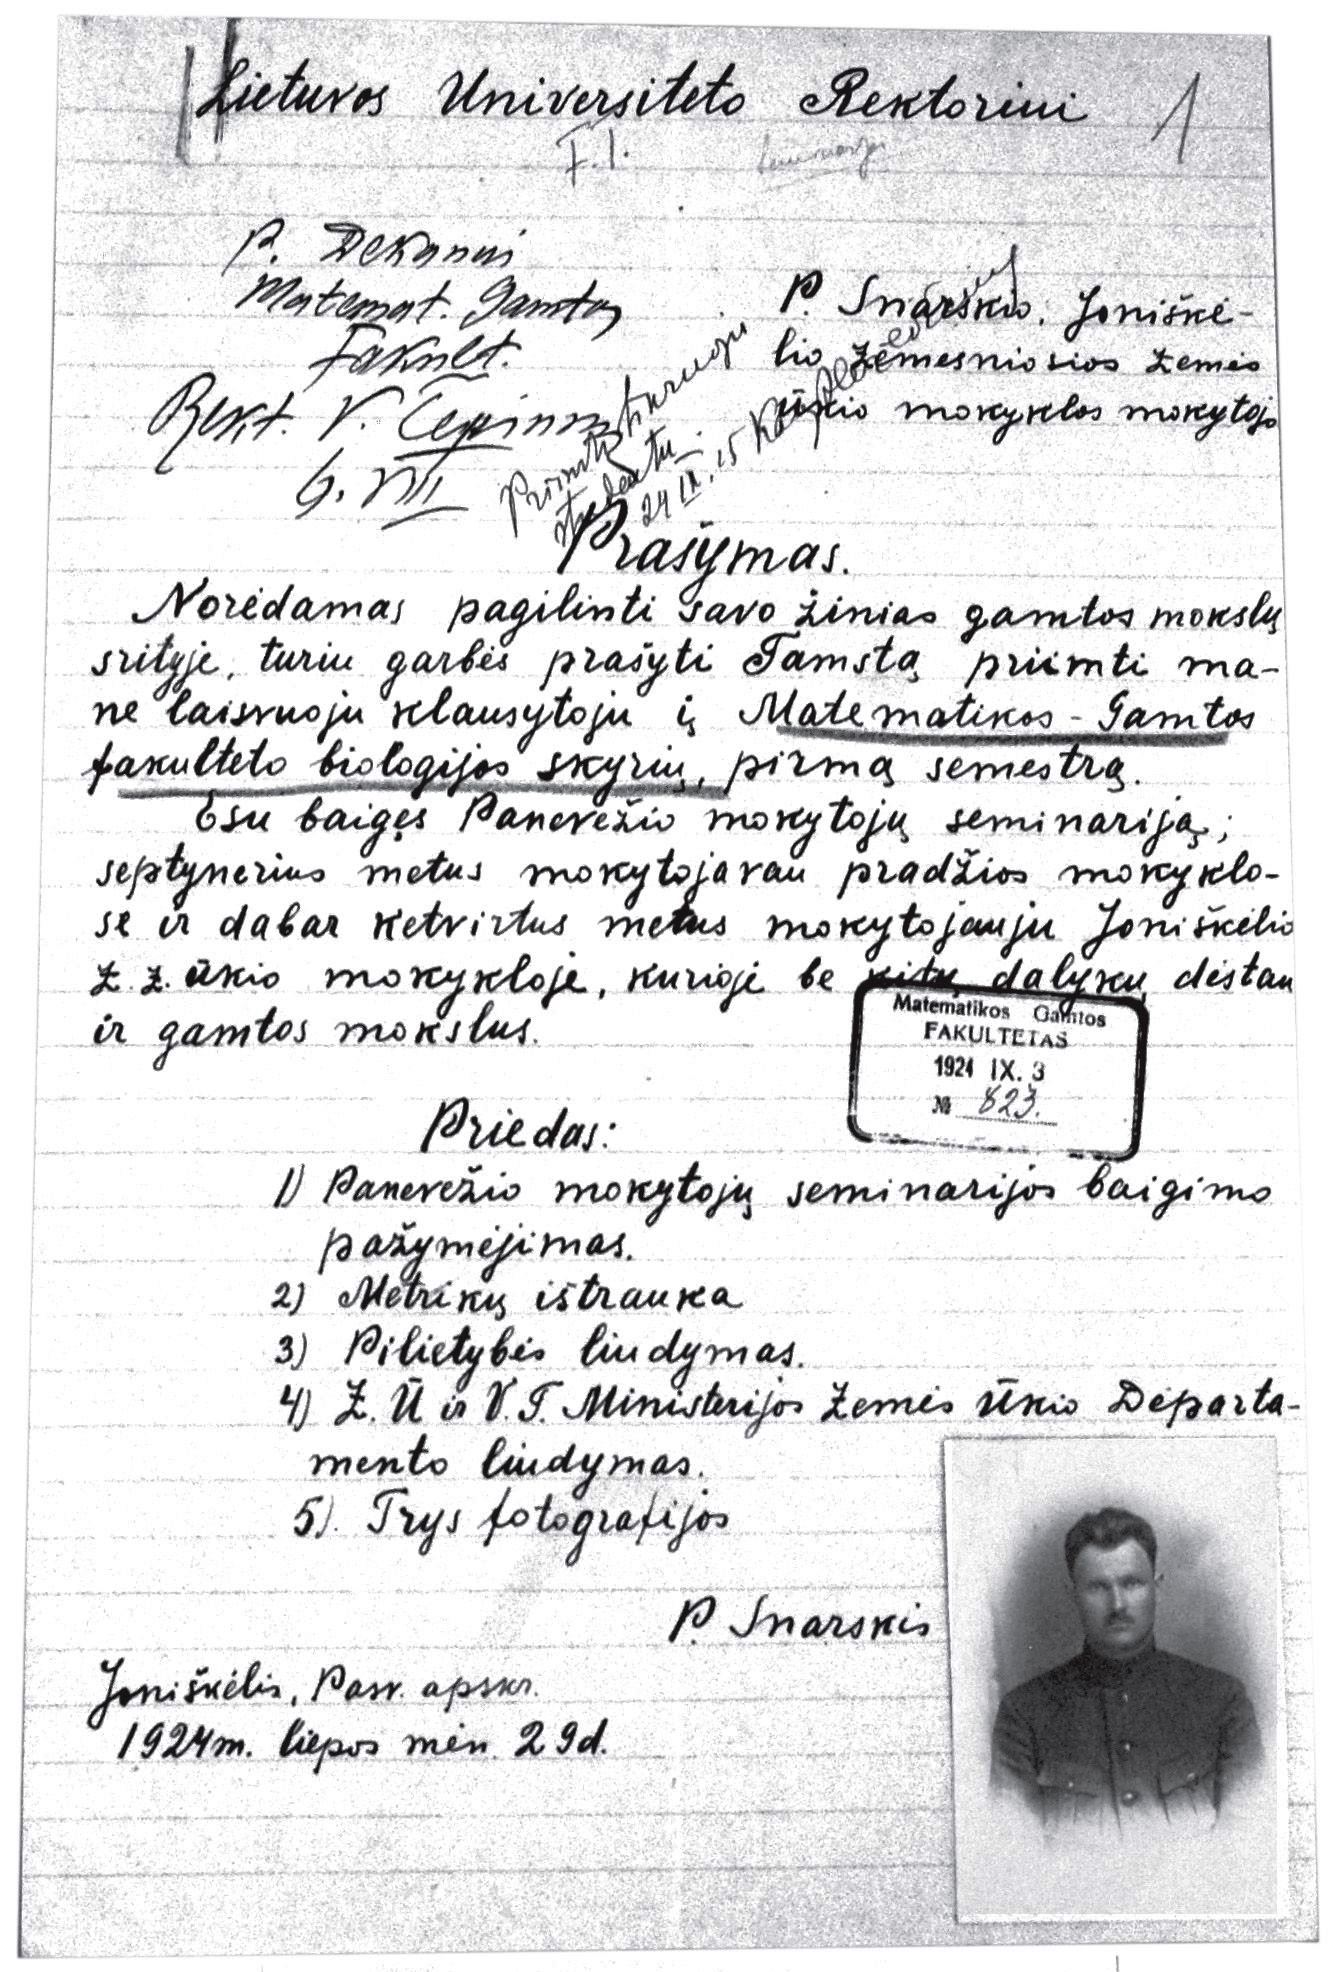 Lietuvos Universiteto Rektoriui
1
F. I.
P. Dekanui
Matemat. Gamtos
Fakult.
Rekt. V. Čepinskis
6. VIII
P. Snarskio, Joniškė-
lio žemesniosios žemės
ūkio mokyklos mokytojo
Priimti tikruoju
studentu
24 IX. 15
Prašymas.
Norėdamas pagilinti savo žinias gamtos mokslų
srityje, turiu garbės prašyti Tamstą priimti ma-
ne laisvuoju klausytoju į Matematikos-Gamtos
fakulteto biologijos skyrių, pirmą semestrą.
Esu baigęs Panevėžio mokytojų seminariją;
septynerius metus mokytojavau pradžios mokyklo-
se ir dabar ketvirtus metus mokytojauju Joniškėlio
Ž. ž. ūkio mokykloje, kurioje be kitų dalykų dėstau
ir gamtos mokslus.
Matematikos Gamtos
FAKULTETAS
1924 IX. 3
№ 823.
Priedas:
1) Panevėžio mokytojų seminarijos baigimo
pažymėjimas.
2) Metrikų ištrauka
3) Pilietybės liudymas.
4) Ž. Ū ir V. T. Ministerijos Žemės Ūkio Departa-
mento liudymas.
5). Trys fotografijos
P. Snarskis
Joniškėlis, Pasv. apskr.
1924 m. liepos mėn. 29 d.